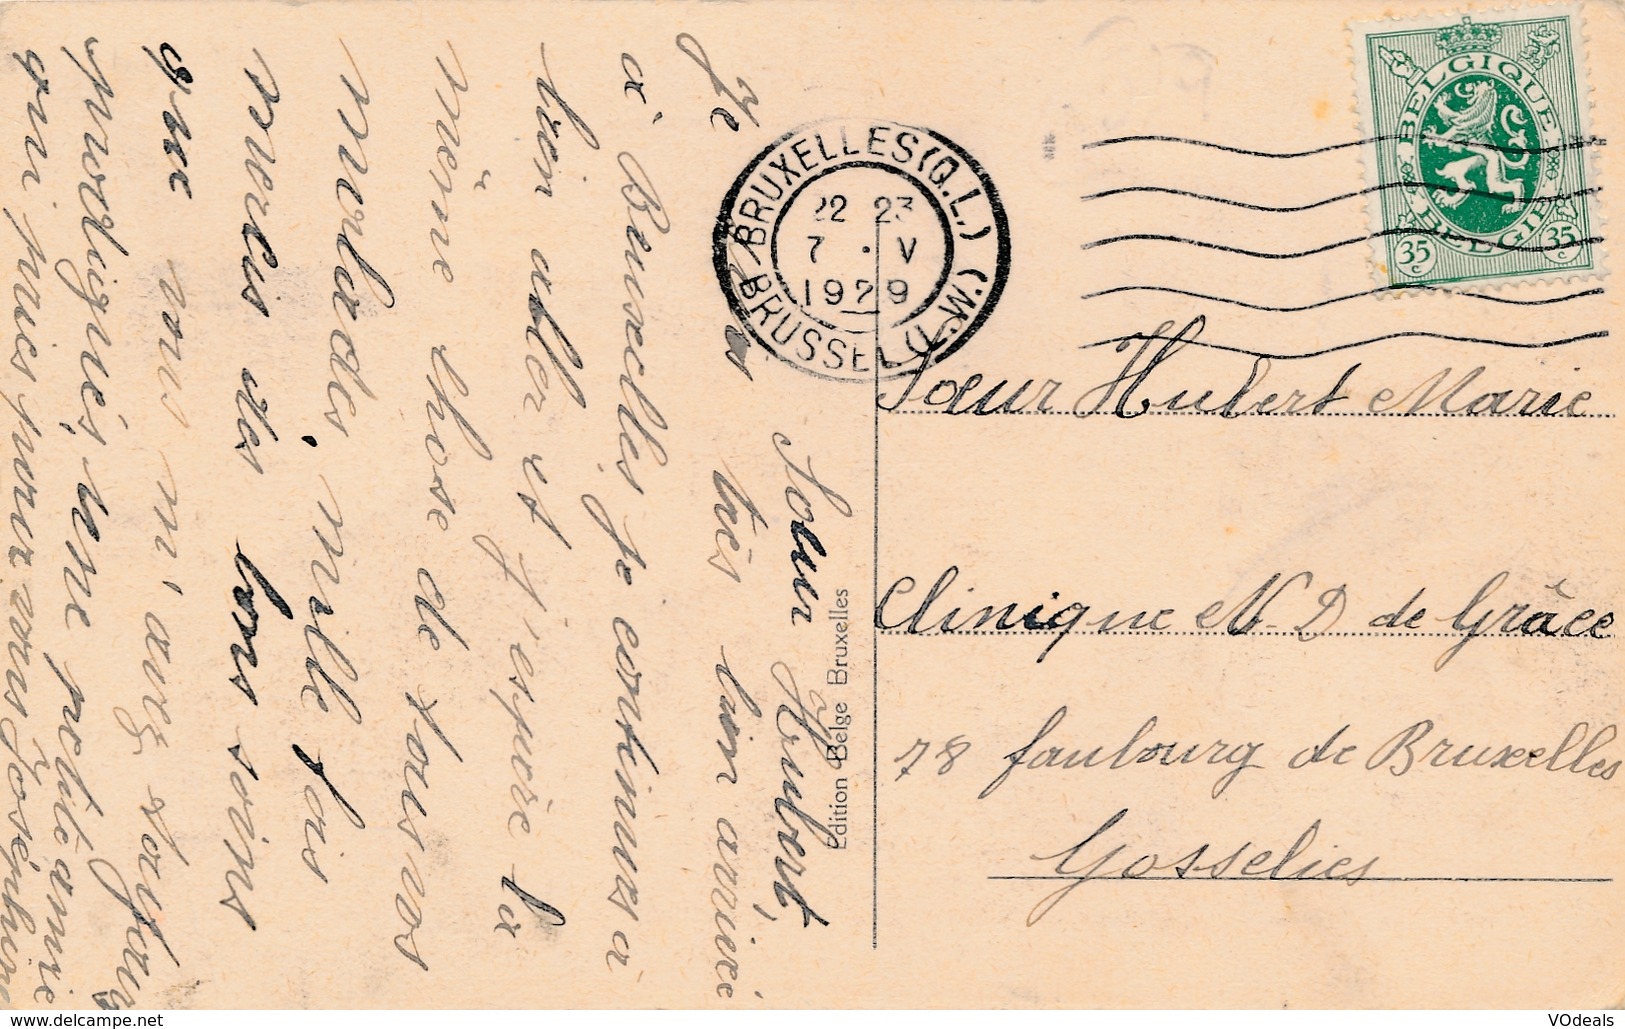 Soeur Hubert,
Je suis très bien arrivée
à Bruxelles je continue à
bien aller et j'espère la
même chose de tous vos
malades, mille fois
mercis des bons soins
que vous m'avez toujours
prodigués, une petite amie
qui priera pour vous Joséphine
BELGIQUE
BELGIE
35 c
35 c
BRUXELLES (Q.L.)
22 23
7 · V
1929
BRUSSEL (L.W.)
Soeur Hubert Marie
Clinique N. D de Grâce
78 faubourg de Bruxelles
Gosselies
Edition Belge Bruxelles
VOdeals
https://www.delcampe.net